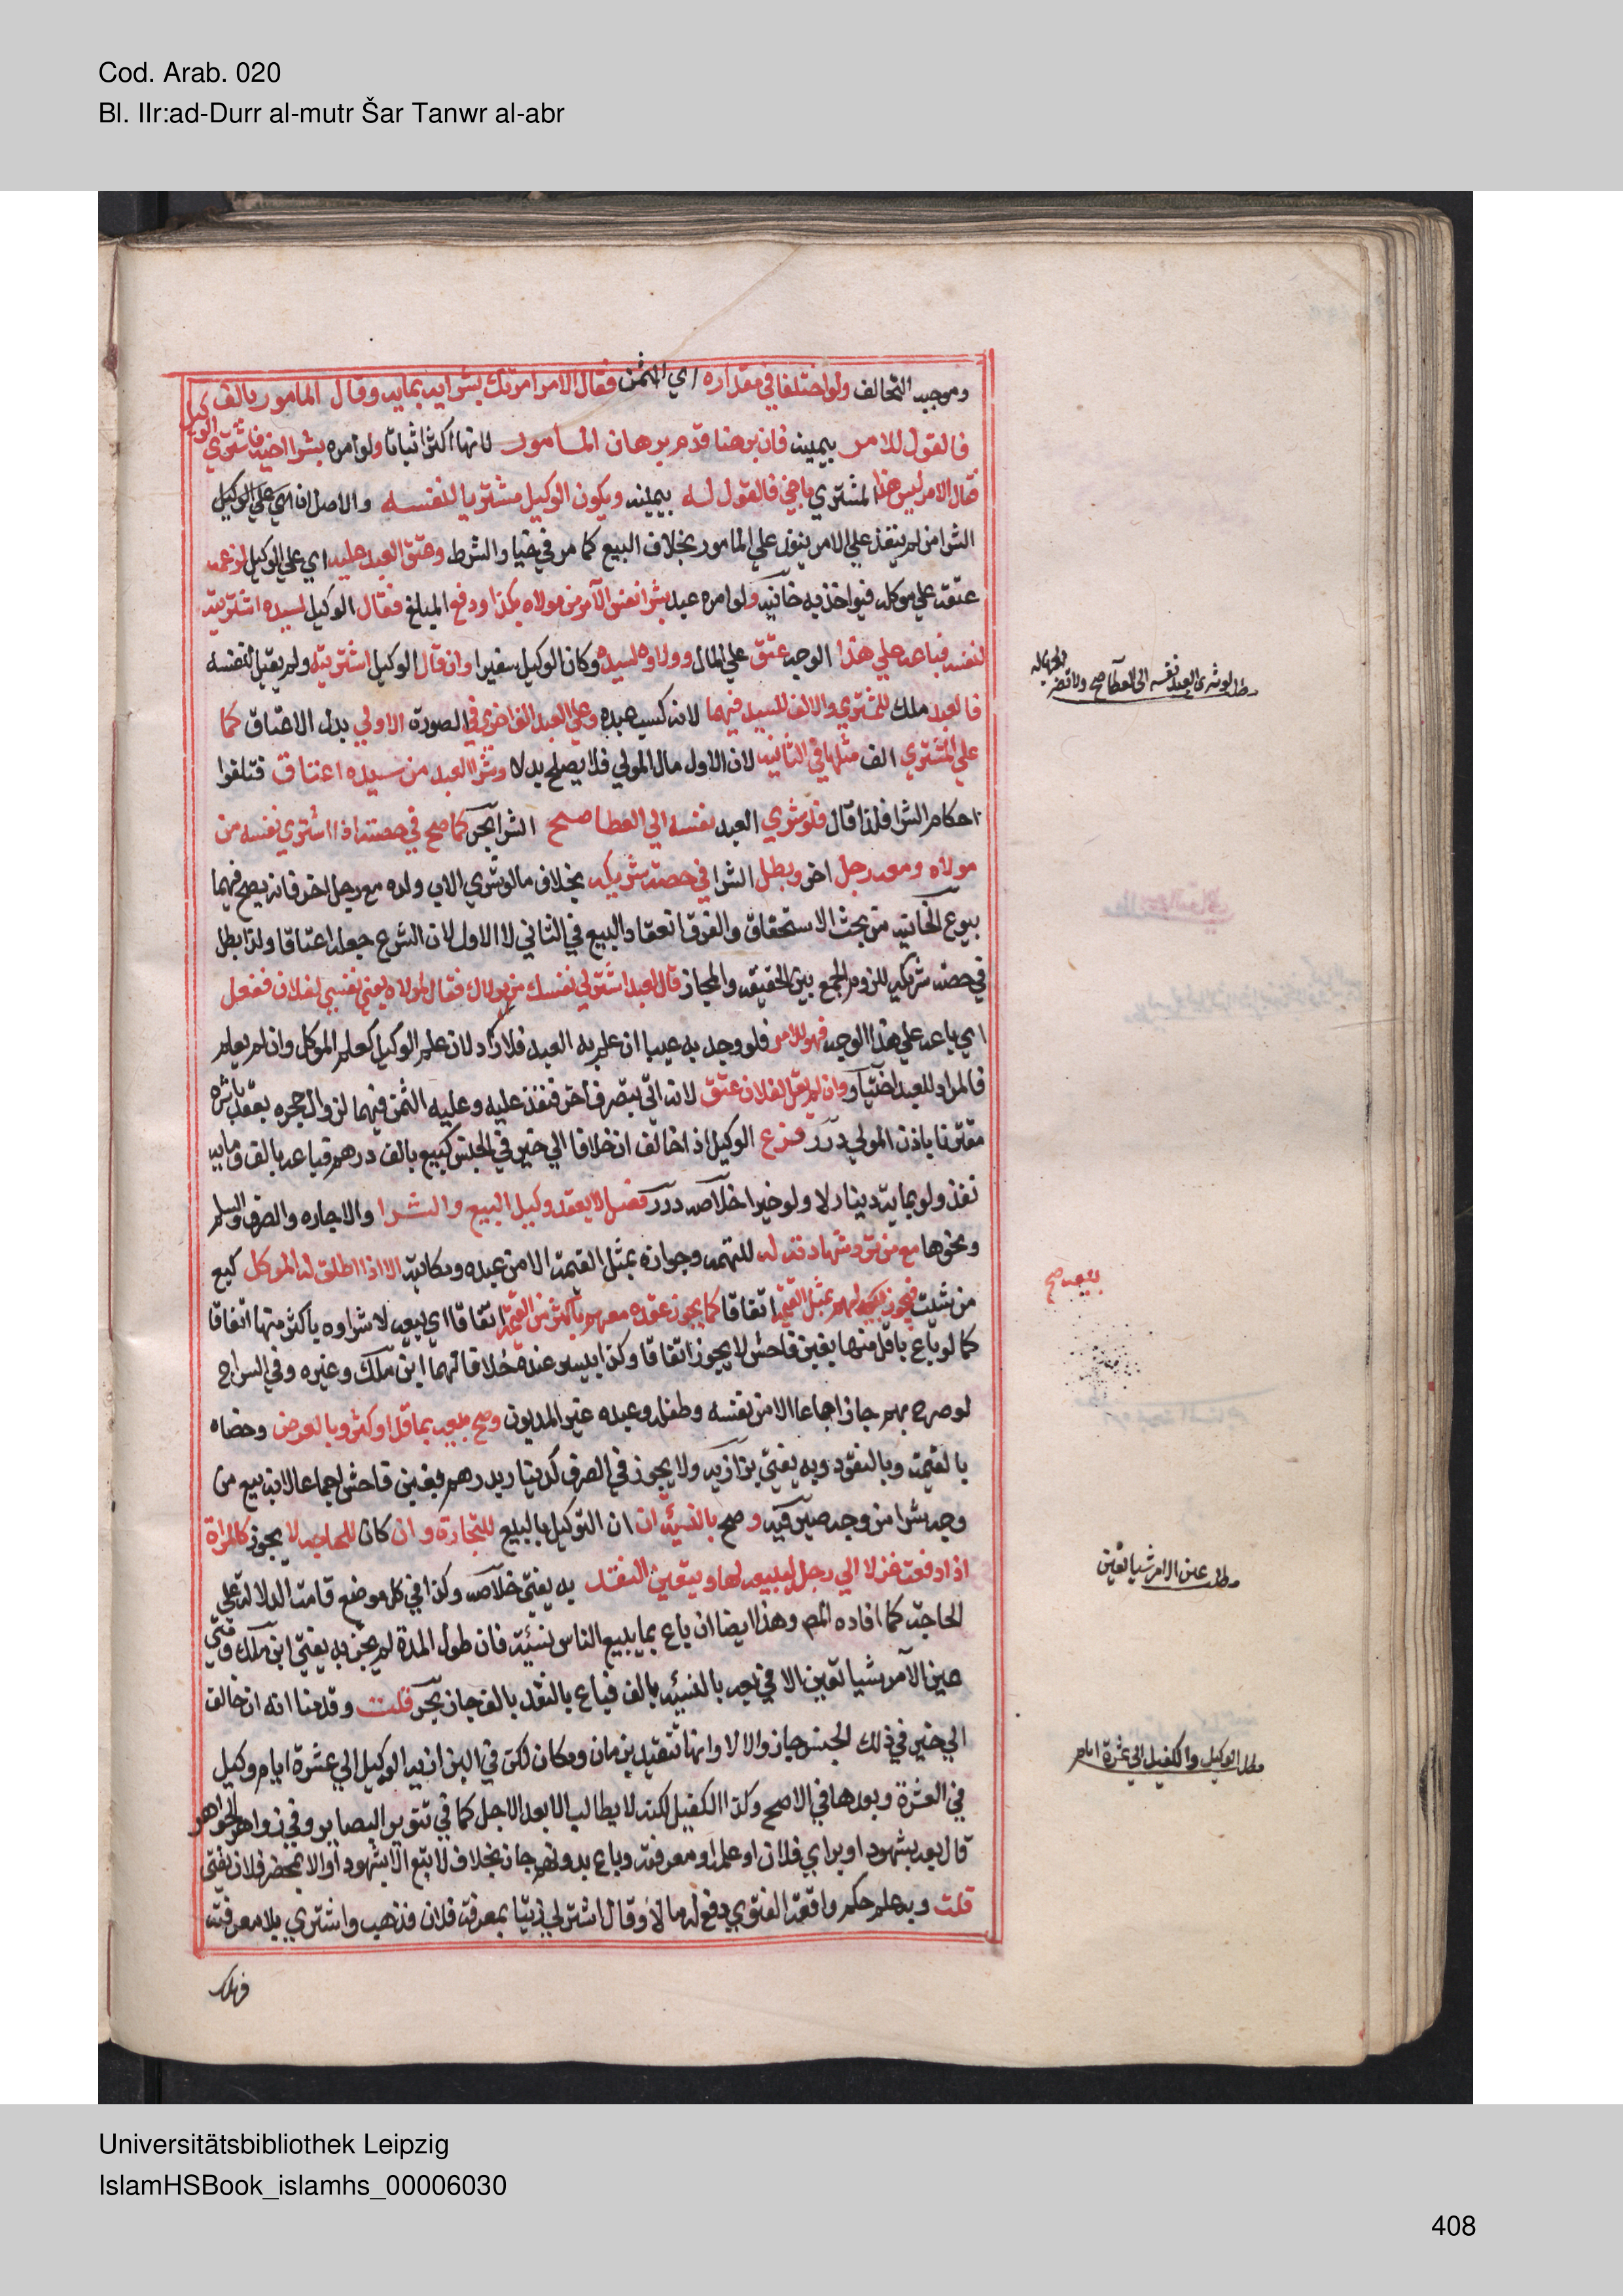 Cod. Arab. 020
Bl. IIr:ad-Durr al-mutr Šar Tanwr al-abr
وموجبه التحالف ولو اختلفا في مقداره اي الثمن فقال الامر امرتك بشرايه بمايه وقال المامور بالف
فالقول للامر بيمينه فان برهنا قدم برهان المامور لانها اكثر اثباتا ولو امره بشرا اخيه فاشتري الوكيل
فقال الامر ليس هذا المشتري باخي فالقول له بيمينه ويكون الوكيل مشتريا لنفسه والاصل ان
الشرا متي لم ينفذ علي الامر ينفذ علي المامور بخلاف البيع كما مر في خيار الشرط وعتق العبد عليه اي علي الوكيل لزعمه
عتقه علي موكله فيواخذ به خانيه ولو امره عبد بشرا نفس الآمر من مولاه بكذا ودفع المبلغ فقال الوكيل لسيده اشتريته
لنفسه فباعه علي هذا الوجه عتق علي المال وولاوه لسيده وكان الوكيل سفيرا وان قال الوكيل اشتريته ولم يقل لنفسه
فالعبد ملك للمشتري والالف للسيد فيهما لانه كسب عبده وعلي العبد الف اخري في الصورة الاولي بدل الاعتاق كما
علي المشتري الف مثلها في الثانيه لان الاول مال المولي فلا يصلح بدلا وشرا العبد من سيده اعتاق فتلغوا
احكام الشرا فلذا قال فلو شري العبد نفسه الي العطا صح الشرا بحر كما صح في حصته اذا اشتري نفسه من
مولاه ومعه رجل اخر وبطل الشرا في حصة شريكه بخلاف ما لو شري الاب ولده مع رجل اخر فانه يصح فيهما
بيوع الخانيه من بحث الاستحقاق والفرق انعقاد البيع في الثاني لا الاول لان الشرع جعله اعتاقا ولذا بطل
في حصه شريكه للزوم الجمع بين الحقيقه والمجاز قال لعبد اشتر لي نفسك من مولاك فقال لمولاه بعني نفسي لفلان ففعل
اي باعه علي هذا الوجه فهو للامر فلو وجد به عيبا ان علم به العبد فلا رد لان علم الوكيل كعلم الموكل وان لم يعلم
فالمراد للعبد اختيار وان لم يقل لفلان عتق لانه اتي بتصرف اخر فنفذ عليه وعليه الثمن فيهما لزوال حجره بعقد باشره
مقترنا باذن المولي درر فرع الوكيل اذا خالف ان خلافا الي خير في الجنس كبيع بالف درهم فباعه بالف ومايه
نفذ ولو بمايه دينار لا ولو خيرا خلاصه درر فصل لا يعقد وكيل البيع والشرا والاجاره والصرف والسلم
ونحوها مع من ترد شهادته له للتهمه وجوازه بمثل القيمة الا من عبده ومكاتبه الا اذا اطلق له الموكل كبع
ممن شئت فيجوز بيعه لهم بمثل القيمة اتفاقا كما يجوز عقده معهم باكثر من القيمة اتفاقا اي بيعه لا شراوه باكثر منها اتفاقا
كما لو باع باقل منها بغبن فاحش لا يجوز اتفاقا وكذا بيسير عنده خلافا لهما ابن ملك وغيره وفي السراج
لو صرح بهم جاز اجماعا الا من نفسه وطفله وعبده غير المديون وصح بيعه بما قل او كثر وبالعرض وخصاه
بالقيمة وبالنقود وبه يفتي بزازيه ولا يجوز في الصرف كدينار بدرهم بغبن فاحش اجماعا لانه بيع من
وجه شرا من وجه صيرفيه وصح بالنسيئة ان ان التوكيل بالبيع للتجارة وان كان للحاجه لا يجوز كالمراة
اذا دفعت غزلا الي رجل ليبيعه لها ويتعين النقد به يفتي خلاصه وكذا في كل موضع قامت الدلالة علي
الحاجة كما افاده المص وهذا ايضا ان باع بما يبيع الناس نسيئة فان طول المدة لم يجز به يفتي ابن ملك ومتي
عين الآمر شيا تعين الا في بعه بالنسيئه بالف فباع بالنقد بالف جاز بحر قلت وقدمنا انه ان خالف
الي خير في ذلك الجنس جاز والا لا وانها تتقيد بزمان ومكان لكن في البزازيه الوكيل الي عشرة ايام وكيل
في العشرة وبعدها في الاصح وكذا الكفيل لكنه لا يطالب الا بعد الاجل كما في تنوير البصاير وفي زواهر الجواهر
قال بعه بشهود او براي فلان او علمه او معرفته وباع بدونهم جاز بخلاف لا تبع الا بشهود او الا بمحضر فلان به يفتي
قلت وبه علم حكم واقعة الفتوي دفع له مالا وقال اشتر لي زيتا بمعرفة فلان فذهب واشتري بلا معرفته
فهلك
مطلب لو شري العبد نفسه الي العطا صح
بيعه صح
مطلب عين الامر شيا تعين
مطلب الوكيل والكفيل الي عشرة ايام
Universitätsbibliothek Leipzig
IslamHSBook_islamhs_00006030
408